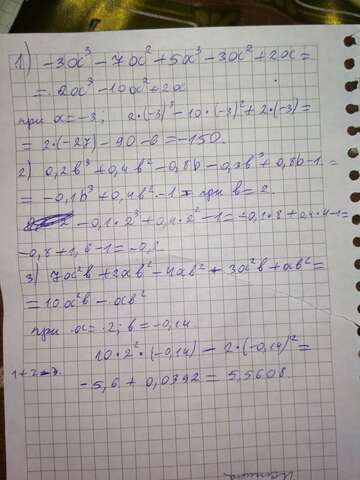 1) -3a³ - 7a² + 5a³ - 3a² + 2a =
= 2a³ - 10a² + 2a
при a = -3; 2·(-3)³ - 10·(-3)² + 2·(-3) =
= 2·(-27) - 90 - 6 = -150.
2) 0,2b³ + 0,4b² - 0,8b - 0,3b³ + 0,8b - 1 =
= -0,1b³ + 0,4b² - 1 при b = 2
-0,1·2³ + 0,4·2² - 1 = -0,1·8 + 0,4·4 - 1 =
-0,8 + 1,6 - 1 = -0,2
3) 7a²b + 2ab² - 4ab² + 3a²b + ab² =
= 10a²b - ab²
при a = 2; b = -0,14.
10·2²·(-0,14) - 2·(-0,14)² =
-5,6 + 0,0392 = 5,5608